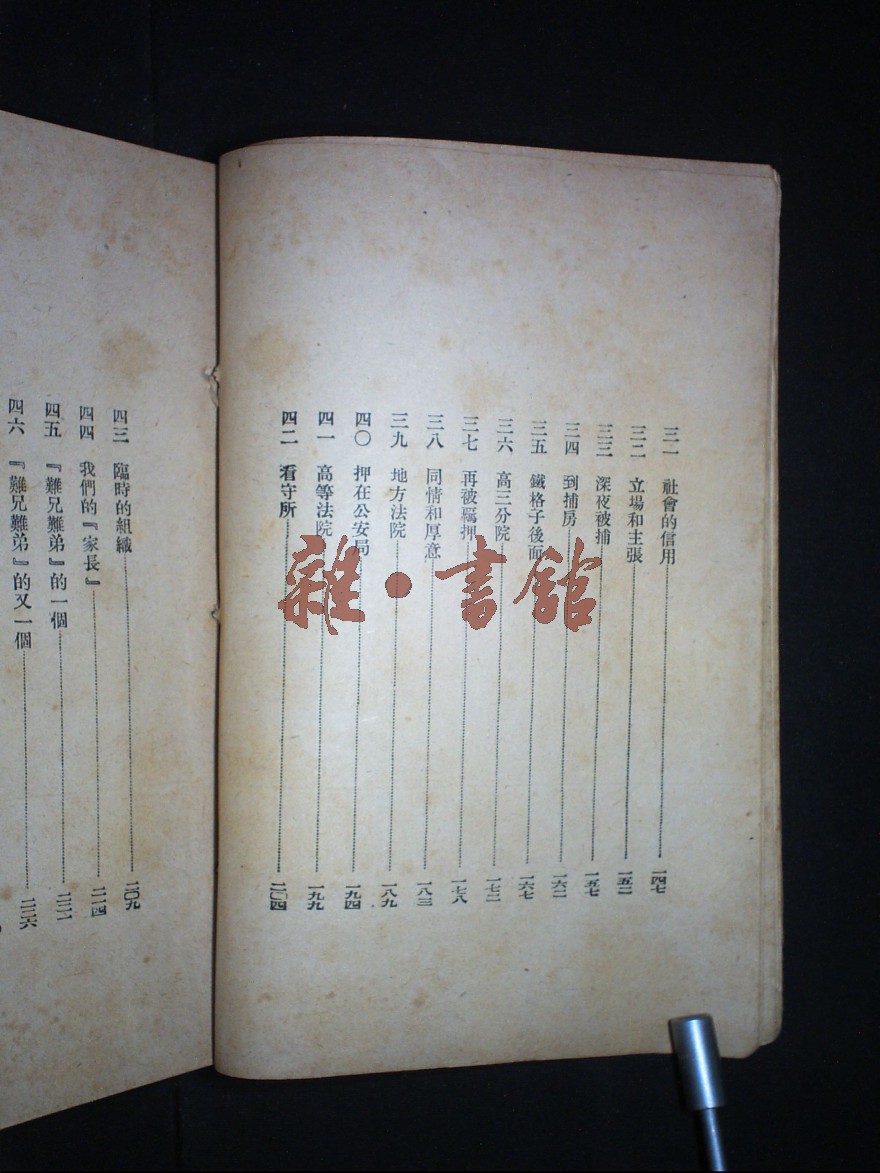 三一 社會的信用 一四七
三二 立場和主張 一五二
三三 深夜被捕 一五七
三四 到捕房 一六二
三五 鐵格子後面 一六七
三六 高三分院 一七二
三七 再被羈押 一七八
三八 同情和厚意 一八三
三九 地方法院 一八九
四〇 押在公安局 一九四
四一 高等法院 一九九
四二 看守所 二〇四
四三 臨時的組織 二〇九
四四 我們的『家長』 二一四
四五 『難兄難弟』的一個
四六 『難兄難弟』的又一個 二二六
雜·書館